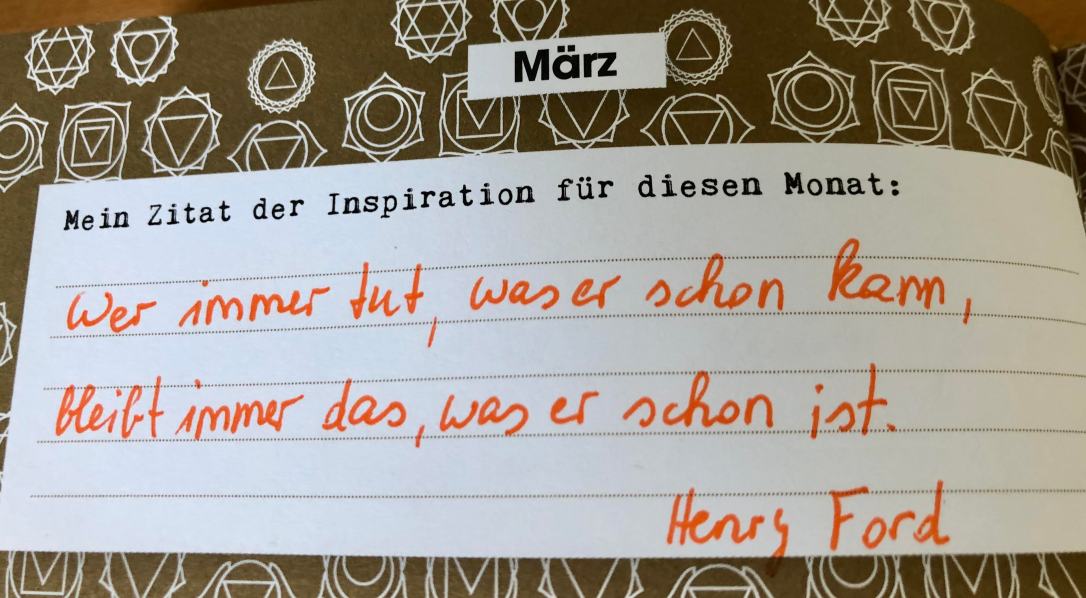 März
Mein Zitat der Inspiration für diesen Monat:
Wer immer tut, was er schon kann,
bleibt immer das, was er schon ist.
Henry Ford